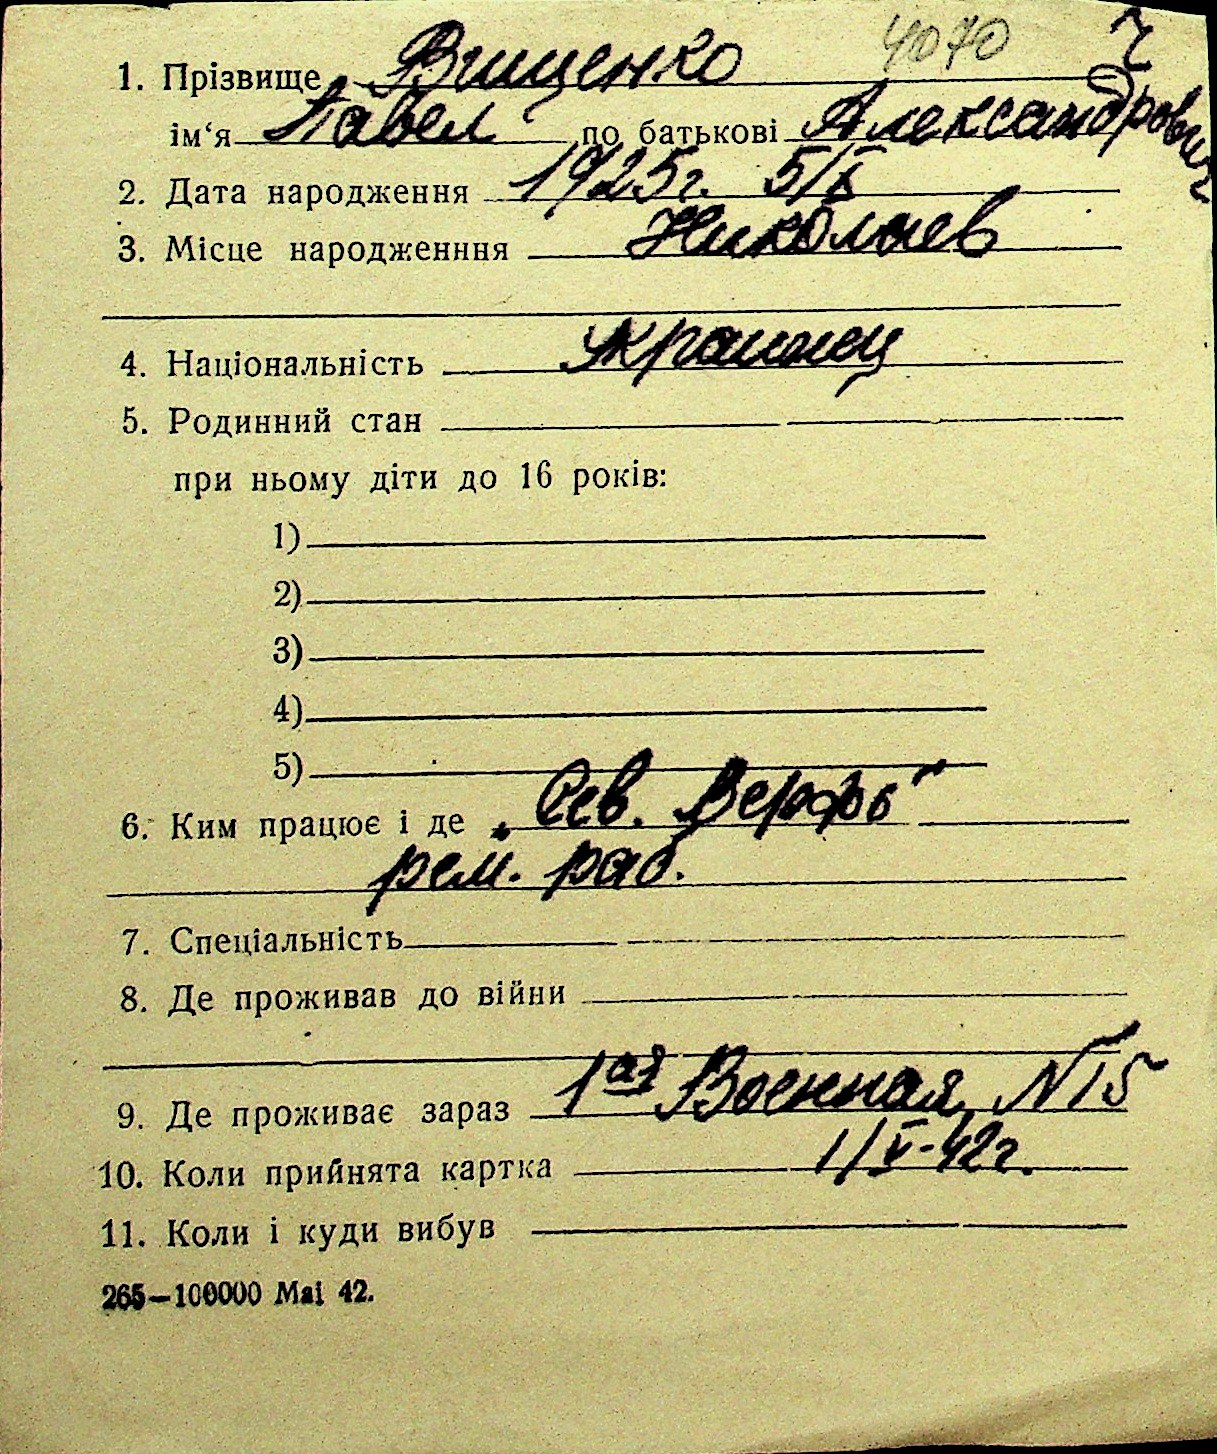 4070 ч
1. Прізвище Вищенко
ім‘я Павел по батькові Александрович
2. Дата народження 1925г. 5/X
3. Місце народженння Николаев
4. Національність Украинец
5. Родинний стан
при ньому діти до 16 років:
1)
2)
3)
4)
5)
6. Ким працює і де „Сев. Верфь“
рем. раб.
7. Спеціальність
8. Де проживав до війни
9. Де проживає зараз 1ая Военная, N15
10. Коли прийнята картка 1/V-42г.
11. Коли і куди вибув
265—100000 Mai 42.